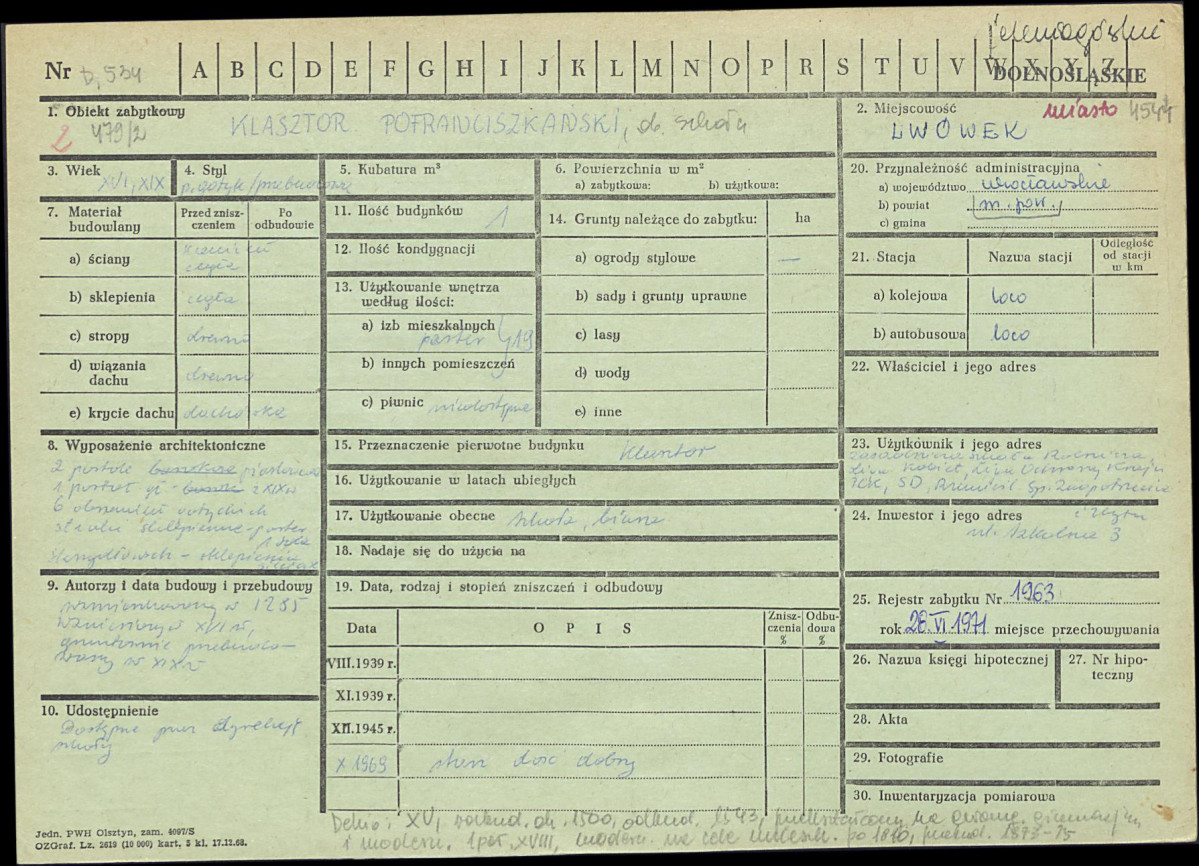 jeleniogórskie
Nr
A B C D E F G H I J K L M N O P R S T U V W X Y Z
DOLNOŚLĄSKIE
1. Obiekt zabytkowy
2 479/2
KLASZTOR POFRANCISZKAŃSKI, ob. szkoła
2. Miejscowość
miasto
LWÓWEK
3. Wiek
XVI, XIX
4. Styl
p. gotyk/przebudowa
5. Kubatura m³
6. Powierzchnia w m²
a) zabytkowa: b) użytkowa:
20. Przynależność administracyjna
a) województwo wrocławskie
b) powiat m. pow.
c) gmina
7. Materiał budowlany
Przed zniszczeniem
Po odbudowie
a) ściany
kamień
cegła
b) sklepienia cegła
c) stropy drewno
d) wiązania dachu drewno
e) krycie dachu dachówka
11. Ilość budynków 1
12. Ilość kondygnacji
13. Użytkowanie wnętrza według ilości:
a) izb mieszkalnych
parter 19
b) innych pomieszczeń
c) piwnic niedostępne
14. Grunty należące do zabytku: ha
a) ogrody stylowe —
b) sady i grunty uprawne
c) lasy
d) wody
e) inne
21. Stacja
Nazwa stacji
Odległość od stacji w km
a) kolejowa loco
b) autobusowa loco
22. Właściciel i jego adres
8. Wyposażenie architektoniczne
2 portale
1 portal gł. - z XIX w
6 obramień
sklepienne - parter
1 sala
9. Autorzy i data budowy i przebudowy
wzmiankowany w 1285
wzniesiony w XVI w,
gruntownie przebudo-
wany w XIX w
10. Udostępnienie
Dostępne przez dyrekcję
szkoły
15. Przeznaczenie pierwotne budynku klasztor
16. Użytkowanie w latach ubiegłych
17. Użytkowanie obecne szkoła, biura
18. Nadaje się do użycia na
19. Data, rodzaj i stopień zniszczeń i odbudowy
Data
OPIS
Zniszczenia %
Odbudowa %
VIII.1939 r.
XI.1939 r.
XII.1945 r.
X 1969 stan dość dobry
23. Użytkownik i jego adres
Zasadnicza szkoła
Liga Kobiet, Liga Obrony Kraju
PCK, SD,
24. Inwestor i jego adres
ul. Szkolna 3
25. Rejestr zabytku Nr 1963
rok 26 VI 1971 miejsce przechowywania
26. Nazwa księgi hipotecznej
27. Nr hipoteczny
28. Akta
29. Fotografie
30. Inwentaryzacja pomiarowa
Jedn. PWH Olsztyn, zam. 4097/S
OZGraf. Lz. 2619 (10 000) kart. 5 kl. 17.12.68.
Dehio: XV, ok. 1500, odbud. 1543,
i modern. 1 poł. XVIII, modern. na cele po 1810, przebud. 1873-75